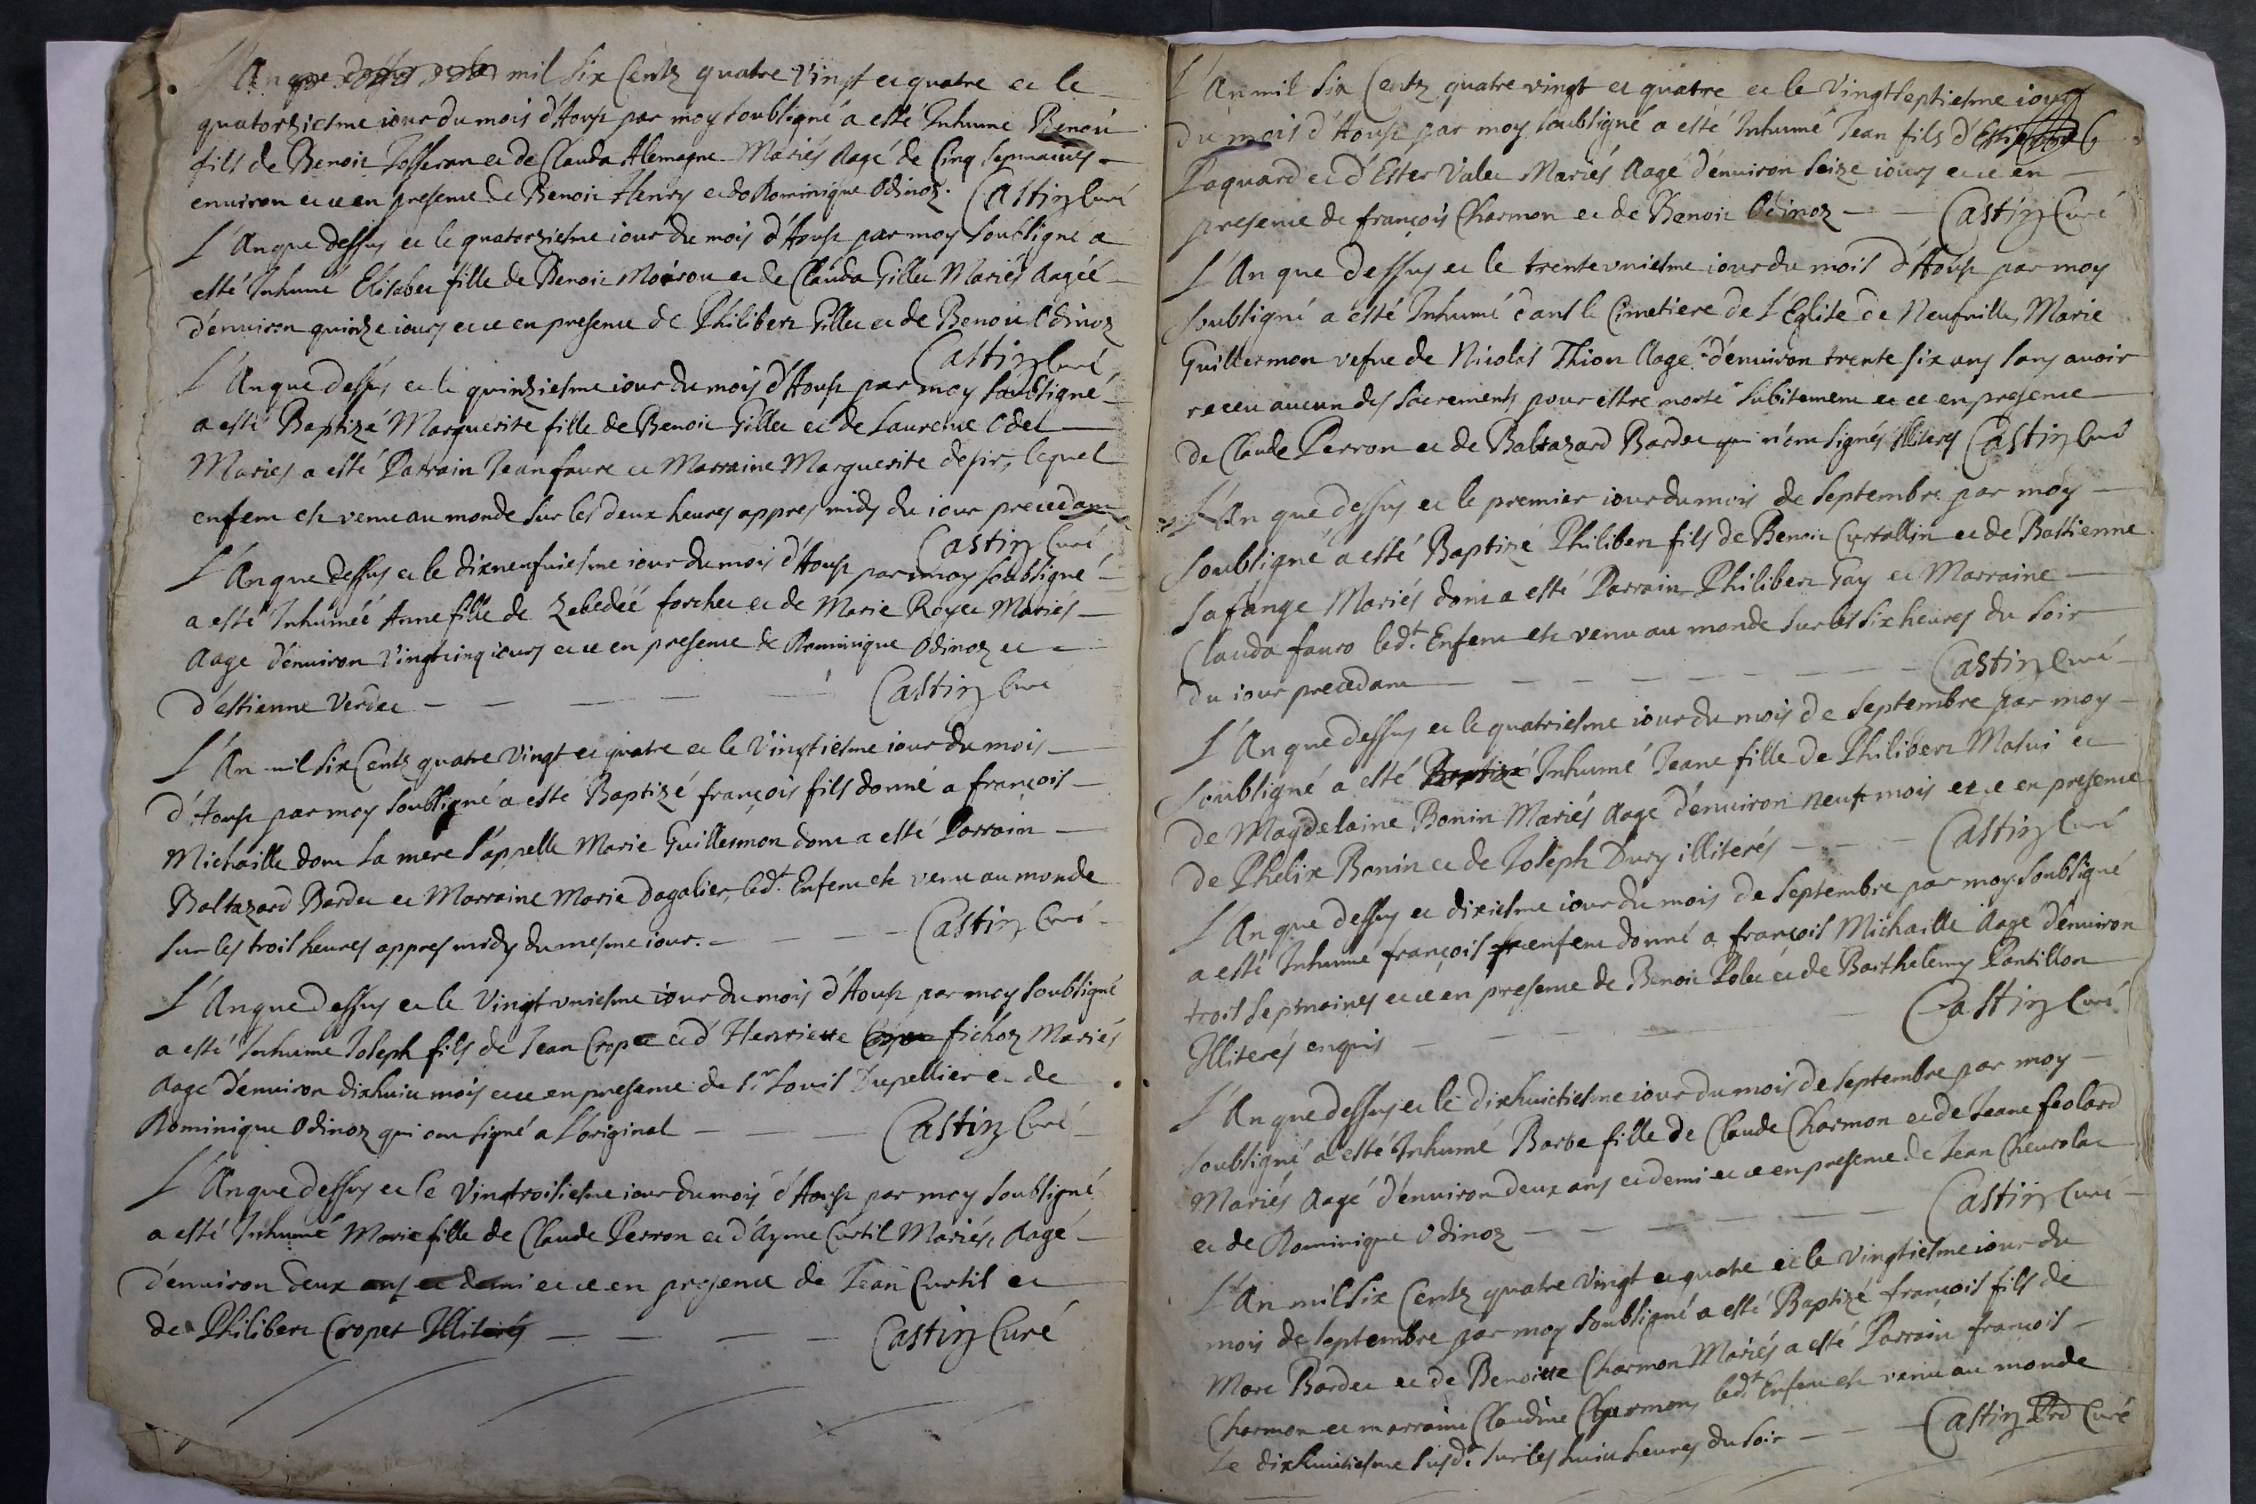 L'An que dessus mil six Centz quatre vingt et quatre et le
quatorziesme iour du mois d'Aoust par moy soubsigné a esté Inhumé Benoit
fils de Benoit Josseran et de Clauda Alemagne Mariés Aagé de Cinq sepmaines
environ et ce en presence de Benoit Henry et de Dominique Odinoz. Castin Curé
L'An que dessus et le quatorziesme iour du mois d'Aoust par moy soubsigné a
esté Inhumé Elisabet fille de Benoit Moiroux et de Clauda Gillet Mariés Aagéé
d'environ quinze iours et ce en presence de Philibert Gillet et de Benoit Odinoz
Castin Curé
L'An que dessus et le quinziesme iour du mois d'Aoust par moy soubsigné
a esté Baptizé Marguerite fille de Benoit Gillet et de Laurence Odet
Mariés a esté Parrain Jean faure et Marraine Marguerite desir, lequel
enfent est venu au monde sur les deux heures appres midy du iour precedant
Castin Curé
L'An que dessus et le dixneufuiesme iour du mois d'Aoust par moy soubsigné
a esté Inhuméé Anne fille de Zebedéé forchet et de Marie Royet Mariés
Aage d'environ vingtcinq iours et ce en presence de Dominique Odinoz et
d'estienne Verdet - - - Castin Curé
L'An mil six Centz quatre vingt et quatre et le Vingtiesme iour du mois
d'Aoust par moy soubsigné a esté Baptizé françois fils donné a françois
Michaille dont la mere s'appelle Marie Guillermon dont a esté Parrain
Baltazard Bardet et Marraine Marie Dagalier, led.t Enfent est venu au monde
sur les trois heures appres midy du mesme iour. - - - Castin Curé
L'An que dessus et le Vingt vniesme iour du mois d'Aoust par moy soubsigné
a esté Inhumé Joseph fils de Jean Crope et d'Henriette fichoz Mariés
Aagé d'environ dixhuict mois et ce en presence de S.r Louis Dupellier et de
Dominique Odinoz qui ont signé a L'original - - - Castin Curé
L'An que dessus et le Vingtroisiesme iour du mois d'Aoust par moy soubsigné
a esté Inhumé Marie fille de Claude Perron et d'Ayme Curtil Mariés, Aagé
d'environ deux ans et demi et ce en presence de Jean Curtil et
de Philibert Cropet Illiterés - - - Castin Curé
L'An mil six Centz quatre vingt et quatre et le Vingtseptiesme iour
du mois d'Aoust par moy soubsigné a esté Inhumé Jean fils d'
Paquard et d'Ester Valet Mariés Aagé d'environ seize iours et ce en
presence de françois Charmon et de Benoit Odinoz - - Castin Curé
L'An que dessus et le trentevniesme iour du mois d'Aoust par moy
soubsigné a esté Inhumé dans le Cimetiere de L'Eglise de Neufuille, Marie
Guillermon vefue de Nicolas Thion Aagé d'environ trente six ans sans auoir
receu aucun des Sacrements pour estre morte subitement et ce en presence
de Claude Perron et de Baltazard Bardet qui n'ont signés Illiterés Castin Curé
L'An que dessus et le premier iour du mois de Septembre par moy
soubsigné a esté Baptizé Philibert fils de Benoit Curtallin et de Bastienne
Lafange Mariés dont a esté Parrain Philibert Gay et Marraine
Clauda faure led.t Enfent est venu au monde sur les six heures du soir
du iour precedant - - - Castin Curé
L'An que dessus et le quatriesme iour du mois de Septembre par moy
soubsigné a esté Baptizé Inhumé Jeane fille de Philibert Matui et
de Magdelaine Bonin Mariés Aagé d'environ neuf mois et ce en presence
de Phelix Bonin et de Joseph Dury illiterés - - - Castin Curé
L'An que dessus et dixiesme iour du mois de Septembre par moy soubsigné
a esté Inhume françois enfent donné a françois Michaille Aagé d'environ
trois sepmaines et ce en presence de Benoit Polet et de Barthelemy Pantillon
Illiterés enquis - - - Castin Curé
L'An que dessus et le dixhuictiesme iour du mois de Septembre par moy
soubsigné a esté Inhumé Barbe fille de Claude Charmon et de Jeane feolard
Mariés Aagé d'environ deux ans et demi et ce en presence de Jean Cheurolat
et de Dominique Odinoz - - - Castin Curé
L'An mil six Centz quatre vingt et quatre et le Vingtiesme iour du
mois de Septembre par moy soubsigné a esté Baptizé françois fils de
Marc Bardet et de Benoitte Charmon Mariés a esté Parrain françois
Charmon et marraine Claudine Charmon, led.t Enfent est venu au monde
Le dixhuictiesme susd.t sur les huict heures du soir - - - Castin Curé